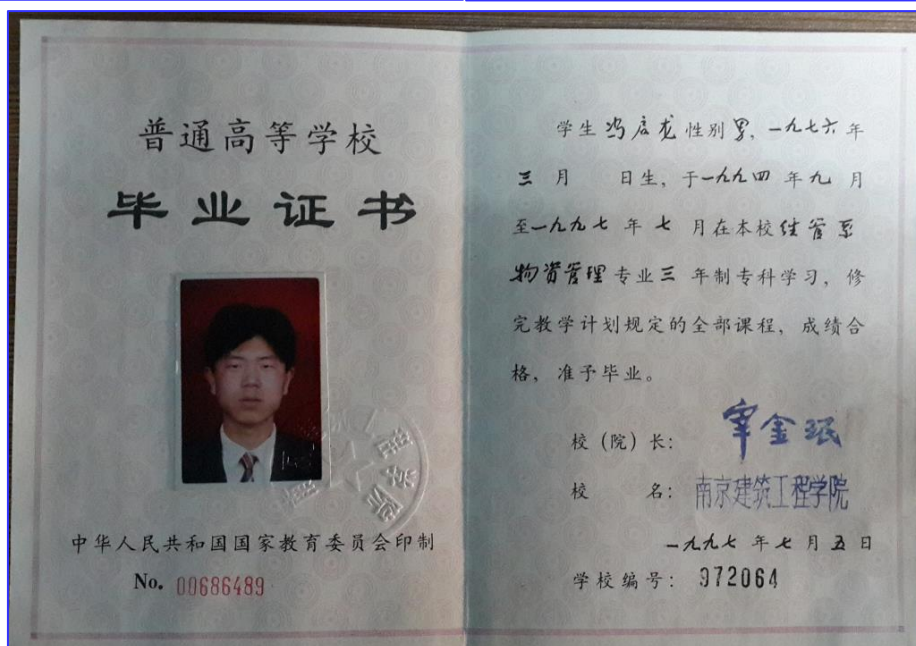 普通高等学校
毕业证书
中华人民共和国国家教育委员会印制
No. 00686489
学生冯启龙性别男,一九七六年
三月 日生,于一九九四年九月
至一九九七年七月在本校经管系
物资管理专业三年制专科学习,修
完教学计划规定的全部课程,成绩合
格,准予毕业。
校(院)长:宰金珉
校 名:南京建筑工程学院
一九九七年七月五日
学校编号:972064